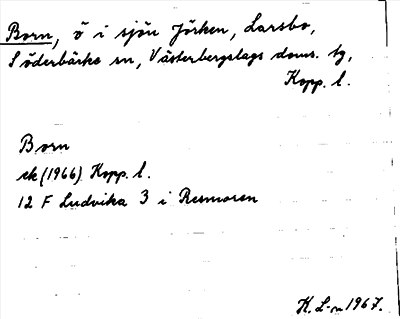 Born, ö i sjön Jörken, Larsbo,
Söderbärke sn, Västerbergslags doms. tg,
Kopp. l.
Born
ek (1966) Kopp. l.
12 F Ludvika 3 i Resmoren
K. L-m 1967.